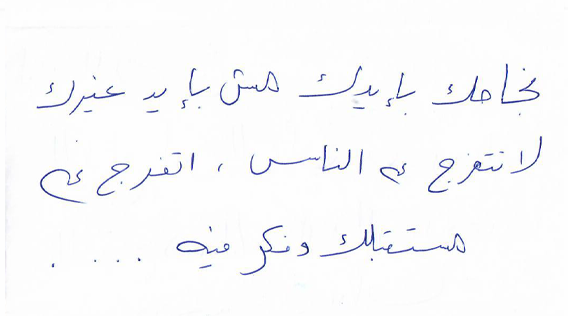 نجاحك بإيدك مش بإيد غيرك
لا تتفرج ع الناس ، اتفرج ع
مستقبلك وفكر فيه ....